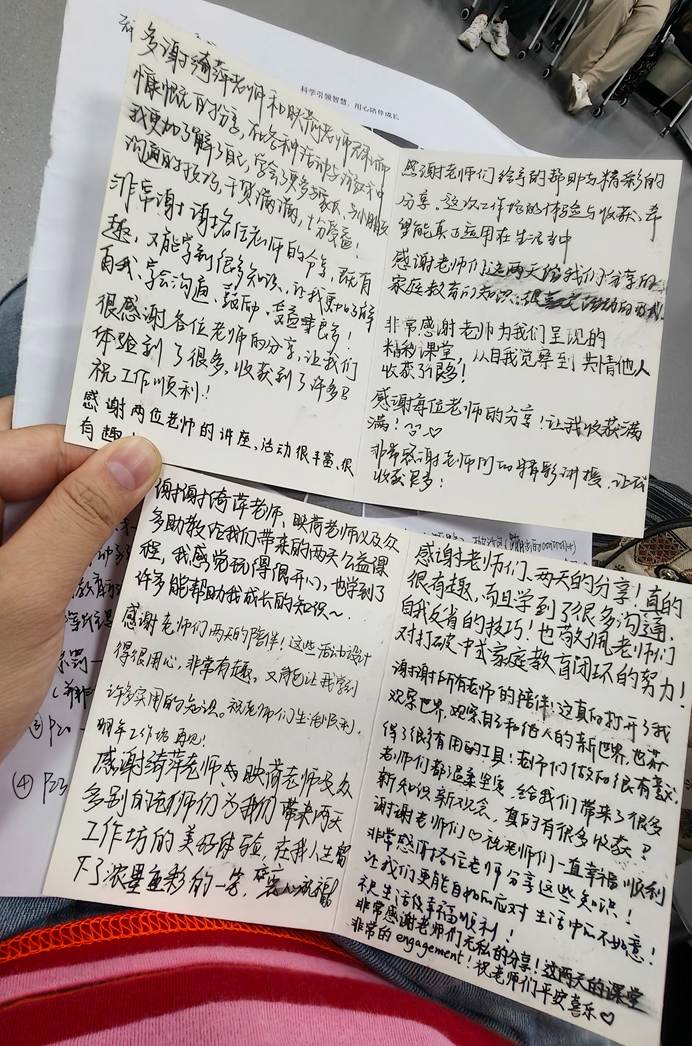 科学引领智慧，用心陪伴成长
多谢绮萍老师和映荷老师无私而
慷慨的分享，在各种活动与游戏中
我更加了解了自己，学会了更多与家长、与小朋友
沟通的技巧，干货满满，十分受益！
非常谢谢各位老师的分享，既有
趣，又能学到很多知识，让我更加了解
自我、学会沟通、鼓励，受益良多！
很感谢各位老师的分享，让我们
体验到了很多，收获到了许多！
祝工作顺利！
感谢两位老师的讲座，活动很丰富、很
有趣！
感谢老师们给予的帮助与精彩的
分享。这次工作坊的体验与收获，希
望能真正运用在生活中
感谢老师们这两天给我们分享的
家庭教育的知识，很喜欢活动的形式
非常感谢老师为我们呈现的
精彩课堂，从自我觉察到共情他人
收获颇多！
感谢每位老师的分享！让我收获满
满！
非常感谢老师们的精彩讲授，让我
收获良多！
谢谢绮萍老师、映荷老师以及众
多助教给我们带来的两天公益课
程，我感觉玩得很开心，也学到了
许多能帮助我成长的知识～
感谢老师们两天的陪伴！这些活动设计
得很用心，非常有趣，又能让我学到
许多实用的知识。祝老师们生活顺利，
明年工作坊再见！
感谢绮萍老师、映荷老师及众
多别的老师们为我们带来两天
工作坊的美好体验，在我人生留
下了浓墨重彩的一笔，祝福！
感谢老师们两天的分享！真的
很有趣，而且学到了很多沟通、
自我反省的技巧！也敬佩老师们
对打破中式家庭教育闭环的努力！
谢谢所有老师的陪伴！这真的打开了我
观察世界、观察自己和他人的新世界，也获
得了很多有用的工具！老师们做的很有意义。
老师们都温柔坚定，给我们带来了很多
新知识新观念，真的有很多收获！
谢谢老师们♡祝老师们一直幸福顺利
非常感谢各位老师分享这些知识！
让我们更能自如应对生活中的不如意！
祝生活幸福顺利！
非常感谢老师们无私的分享！这两天的课堂
非常的engagement！祝老师们平安喜乐♡
③ P20
④ P23